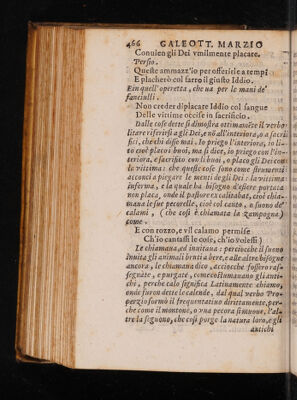 466 GALEOTT. MARZIO
Conuien gli Dei vmilmente placare.
Persio.
Queste ammazz'io per offerirle a tempi
E placherò col farro il giusto Iddio.
E in quell'operetta, che ua per le mani de'
fanciulli.
Non creder di placare Iddio col sangue
Delle vittime occise in sacrificio.
Dalle cose dette si dimostra ottimamẽte il verbo
litare riferirsi a gli Dei, e nõ all'interiora, o a sacri
fici, che chi disse mai. Io priego l'interiora, io li-
to cioè placo i buoi, ma si dice, io priego con l'in-
teriora, e sacrifico con li buoi, o placo gli Dei con
le vittima: che queste cose sono come stromenti
acconci a piegare le menti degli Dei: la vittima
inferma, e la quale ha bisogno d'essere portata
non placa, onde il pastore excalãtabat, cioè chia-
mana le sue pecorelle, cioè col canto, e suono de'
calami, (che così è chiamata la zampogna)
come.
E con rozzo, e vil calamo permise
Ch'io cantassi le cose, ch'io volessi)
Le chiamaua, ed inuitana: percioche il suono
inuita gli animali bruti a bere, e alle altre bisogne
ancora, le chiamana dico, accioche fossero ras-
segnate, e purgate, come costumanano gli anti-
chi, perche calo significa Latinamente chiamo,
onde furon dette le calende, dal qual verbo Pro-
perzio formò il frequentatiuo dirittamente, per-
che come il montone, o vna pecora si muoue, l'al-
tre la seguono, che così porge la natura loro, e gli
antichi